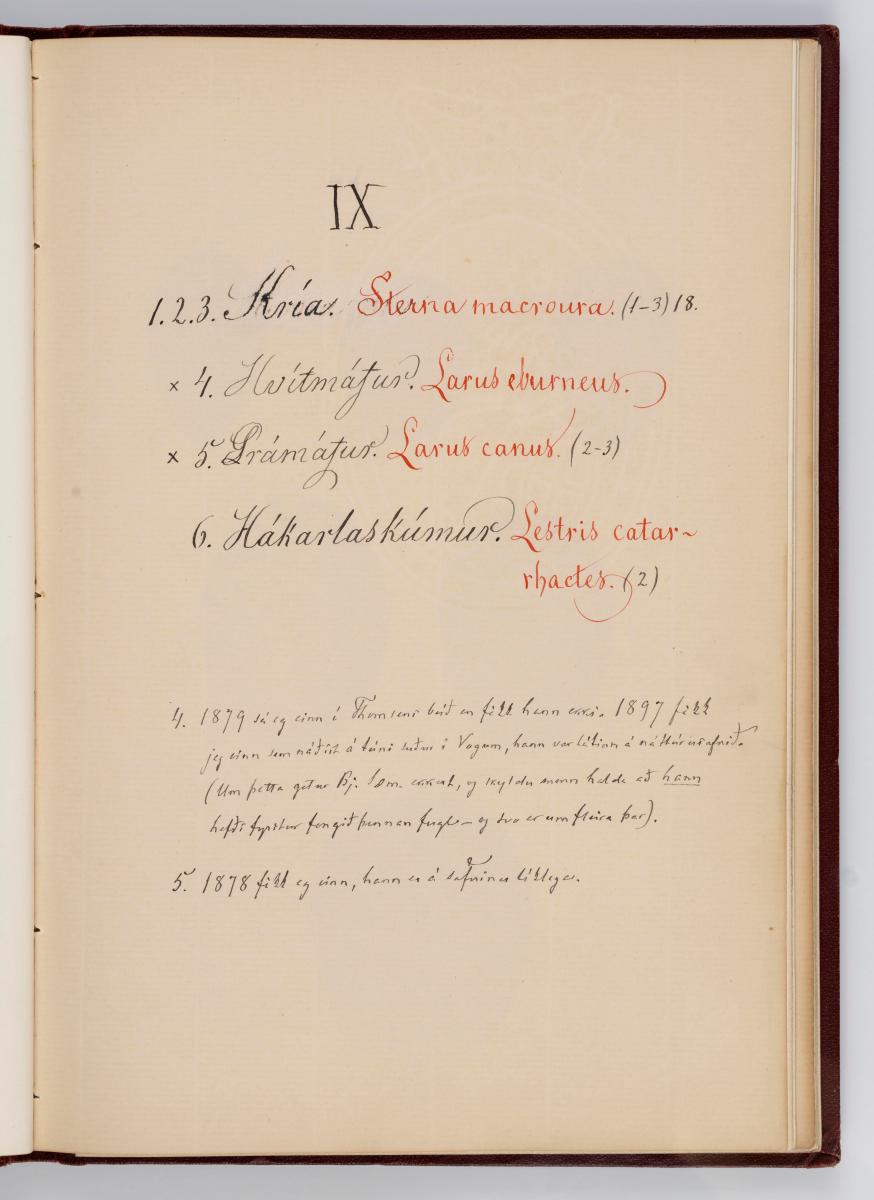 IX
1.2.3. Kría. Sterna macroura. (1-3) 18.
× 4. Hvítmáfur. Larus eburneus.
× 5. Grámáfur. Larus canus. (2-3)
6. Hákarlaskúmur. Lestris catar~
rhactes. (2)
4. 1879 sá eg einn í Thomsens búð en fékk hann ekki. 1897 fékk
jeg einn sem náðist á túni suður í Vogum, hann var látinn á náttúrusafnið.
(Um þetta getur Bj. Sæm. ekkert, og skyldu menn halda að hann
hefði fyrstur fengið þennan fugl – og svo er um fleira þar).
5. 1878 fékk eg einn, hann er á safninu líklega.